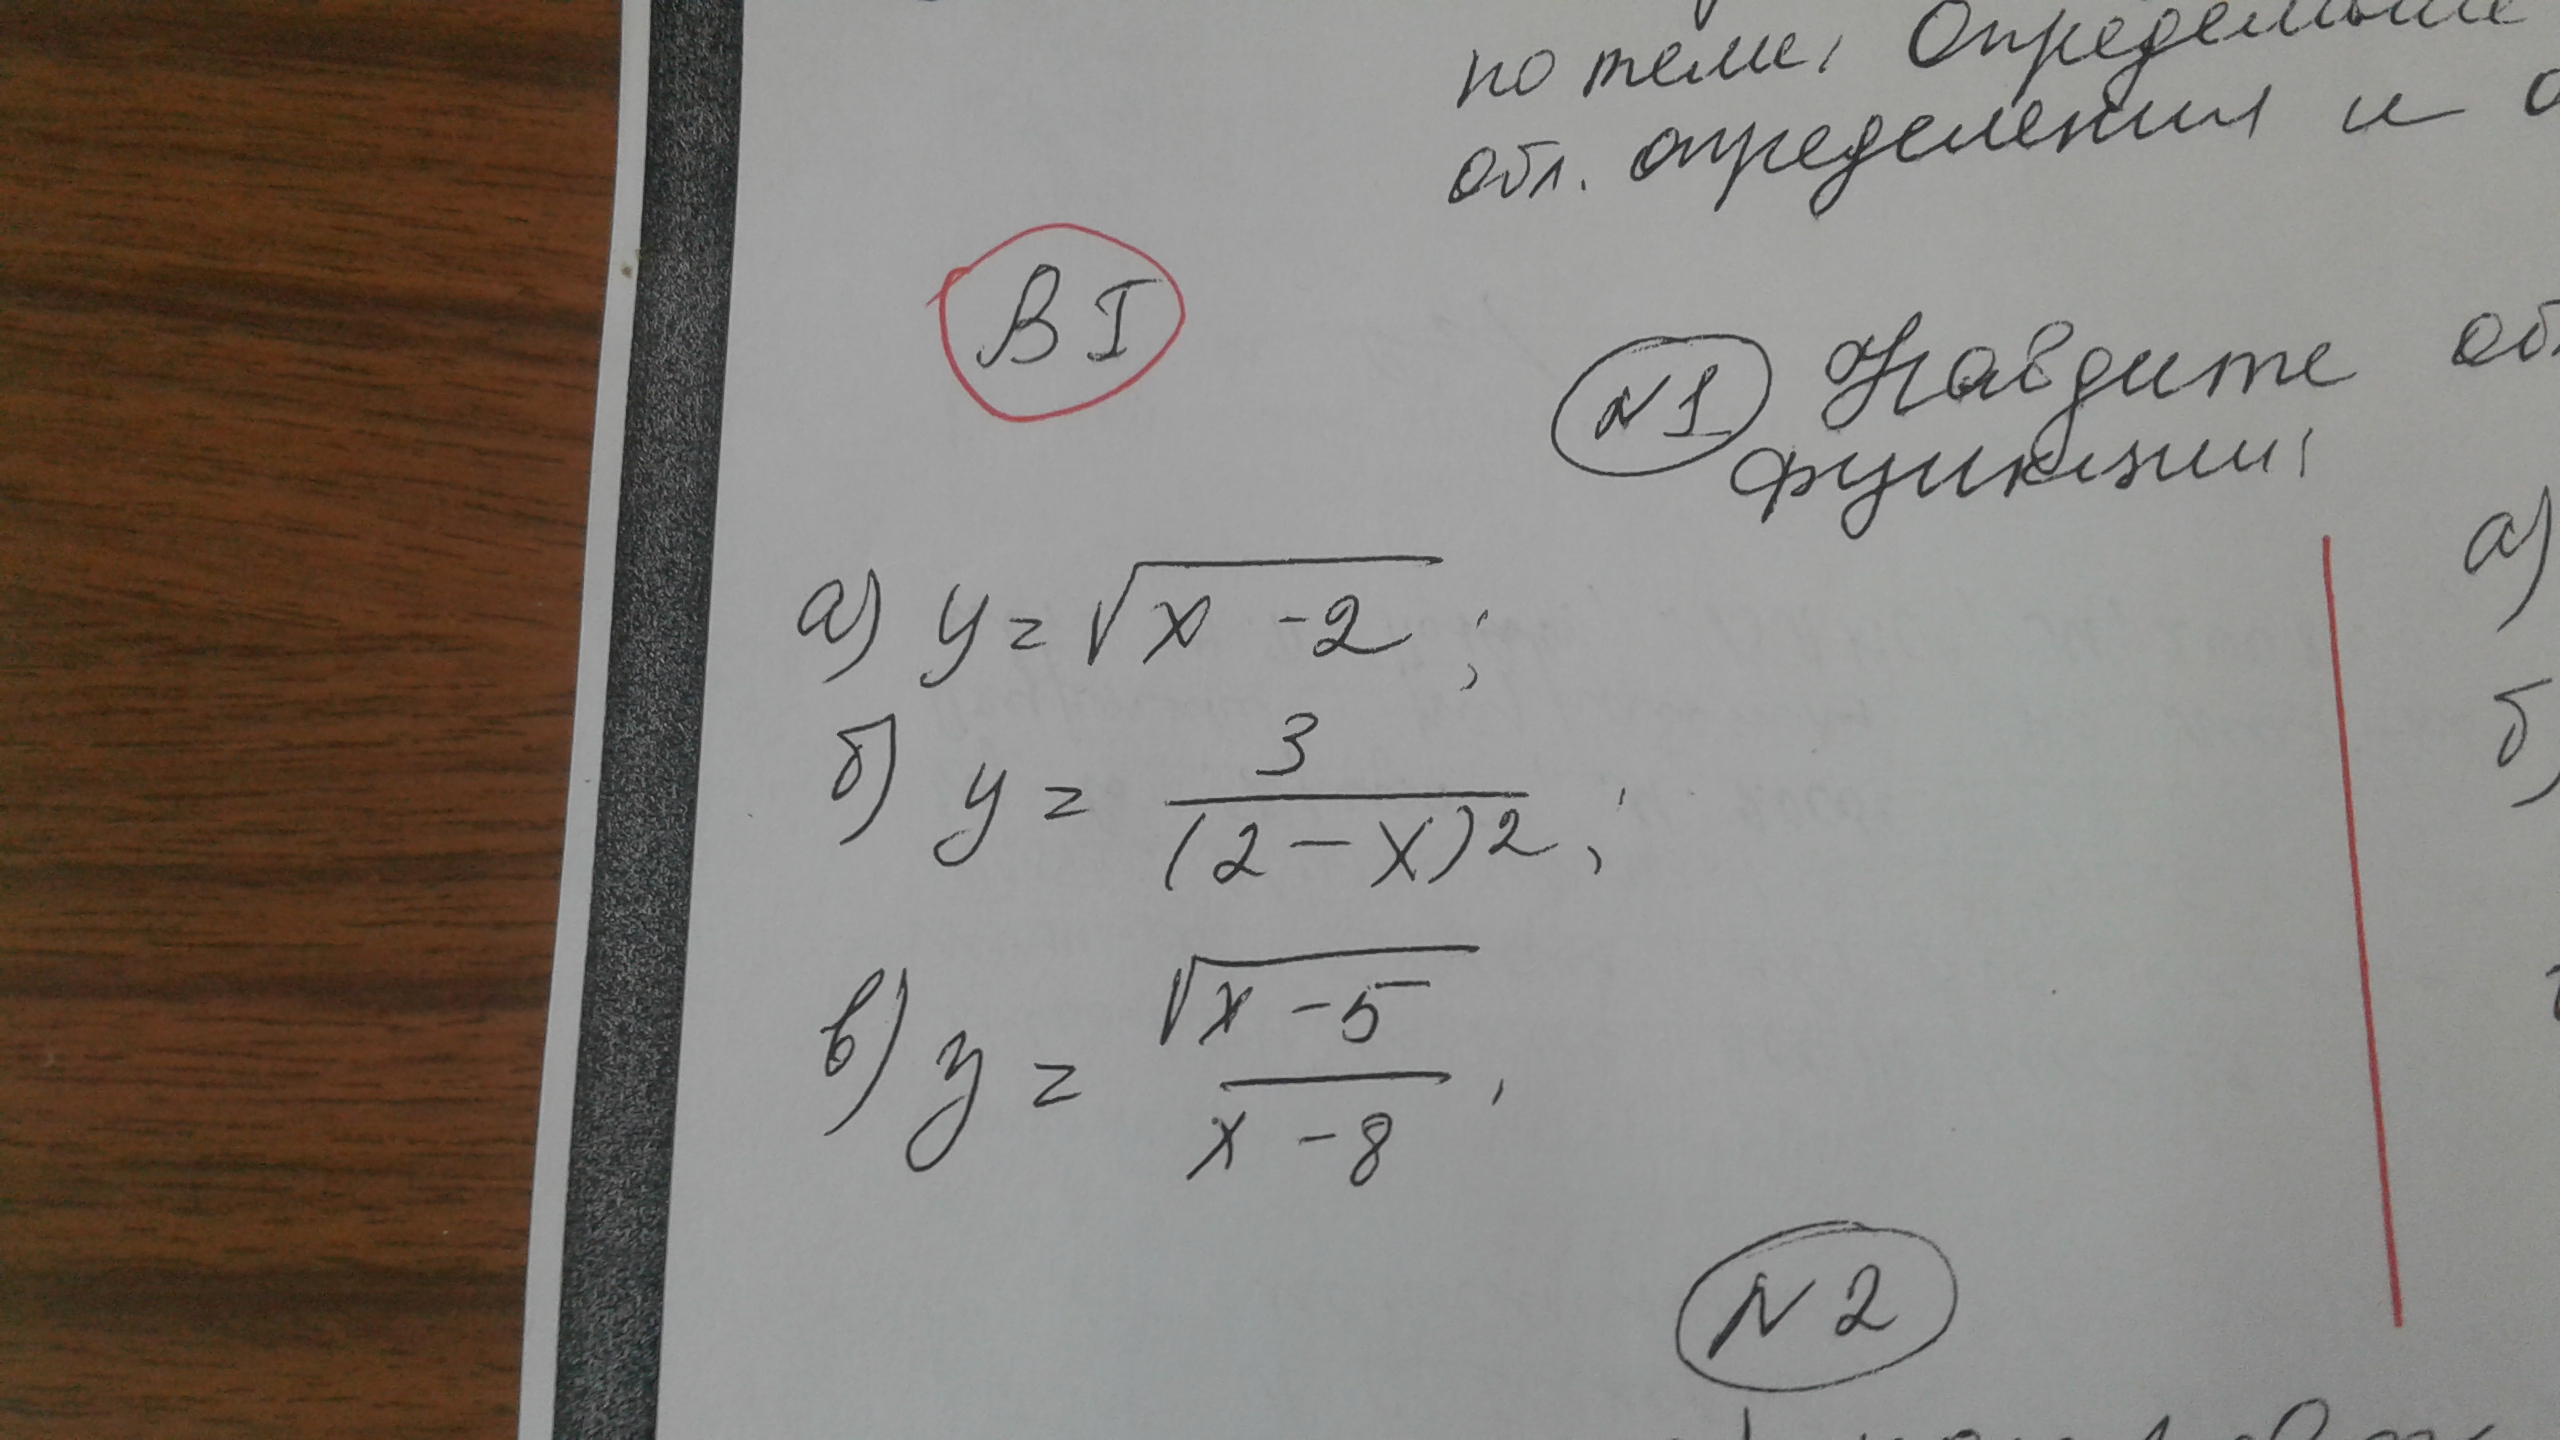 по теме: Определение
обл. определения и
В I
N1 Найдите
функции:
а) y = √x - 2 ;
а)
б) y = 3/(2 - x)2 ;
б)
в) y = √x - 5/x - 8 .
N 2